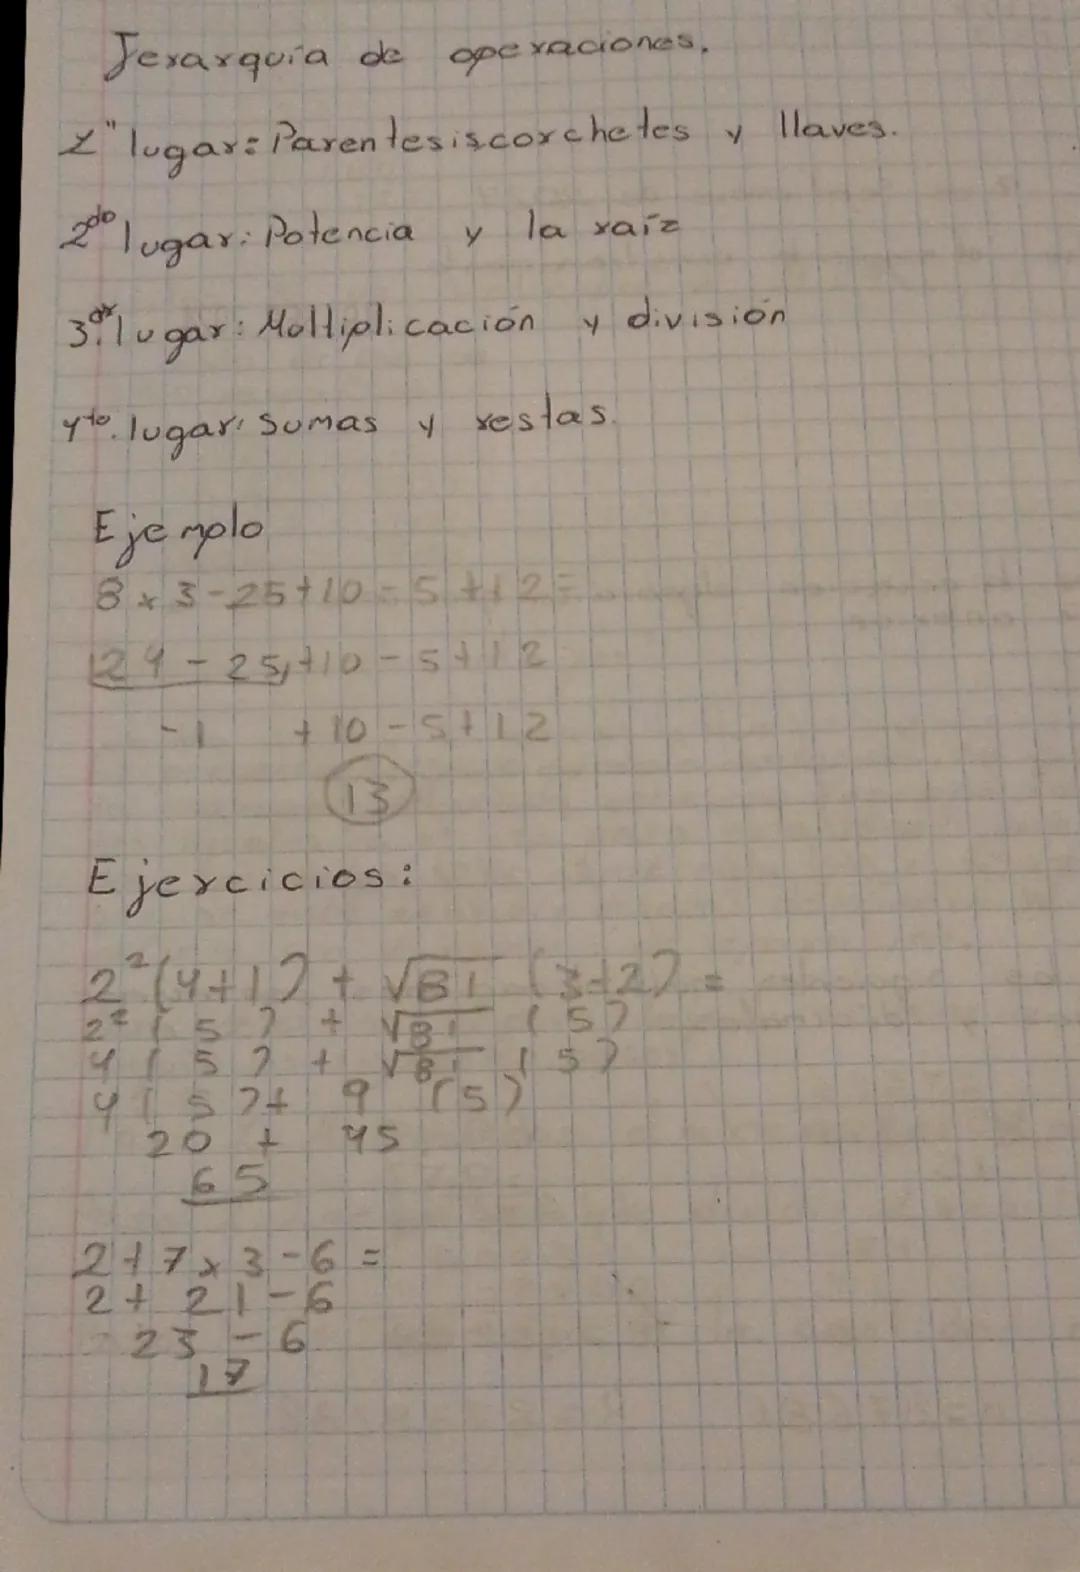 Jerarquía de operaciones.
1" lugar: Parentesis, corchetes y llaves.
2do lugar: Potencia y la raíz
3.er lugar: Multiplicación y división
4to. lugar: Sumas y restas.
Ejemplo
8 x 3 - 25 + 10 - 5 + 12 =
24 - 25 + 10 - 5 + 12
-1 + 10 - 5 + 12
13
Ejercicios:
2²(4+1) + √81 (3+2) =
2² (5) + √81 (5)
4 (5) + √81 (5)
4 (5) + 9 (5)
20 + 45
65
2 + 7 x 3 - 6 =
2 + 21 - 6
23 - 6
17